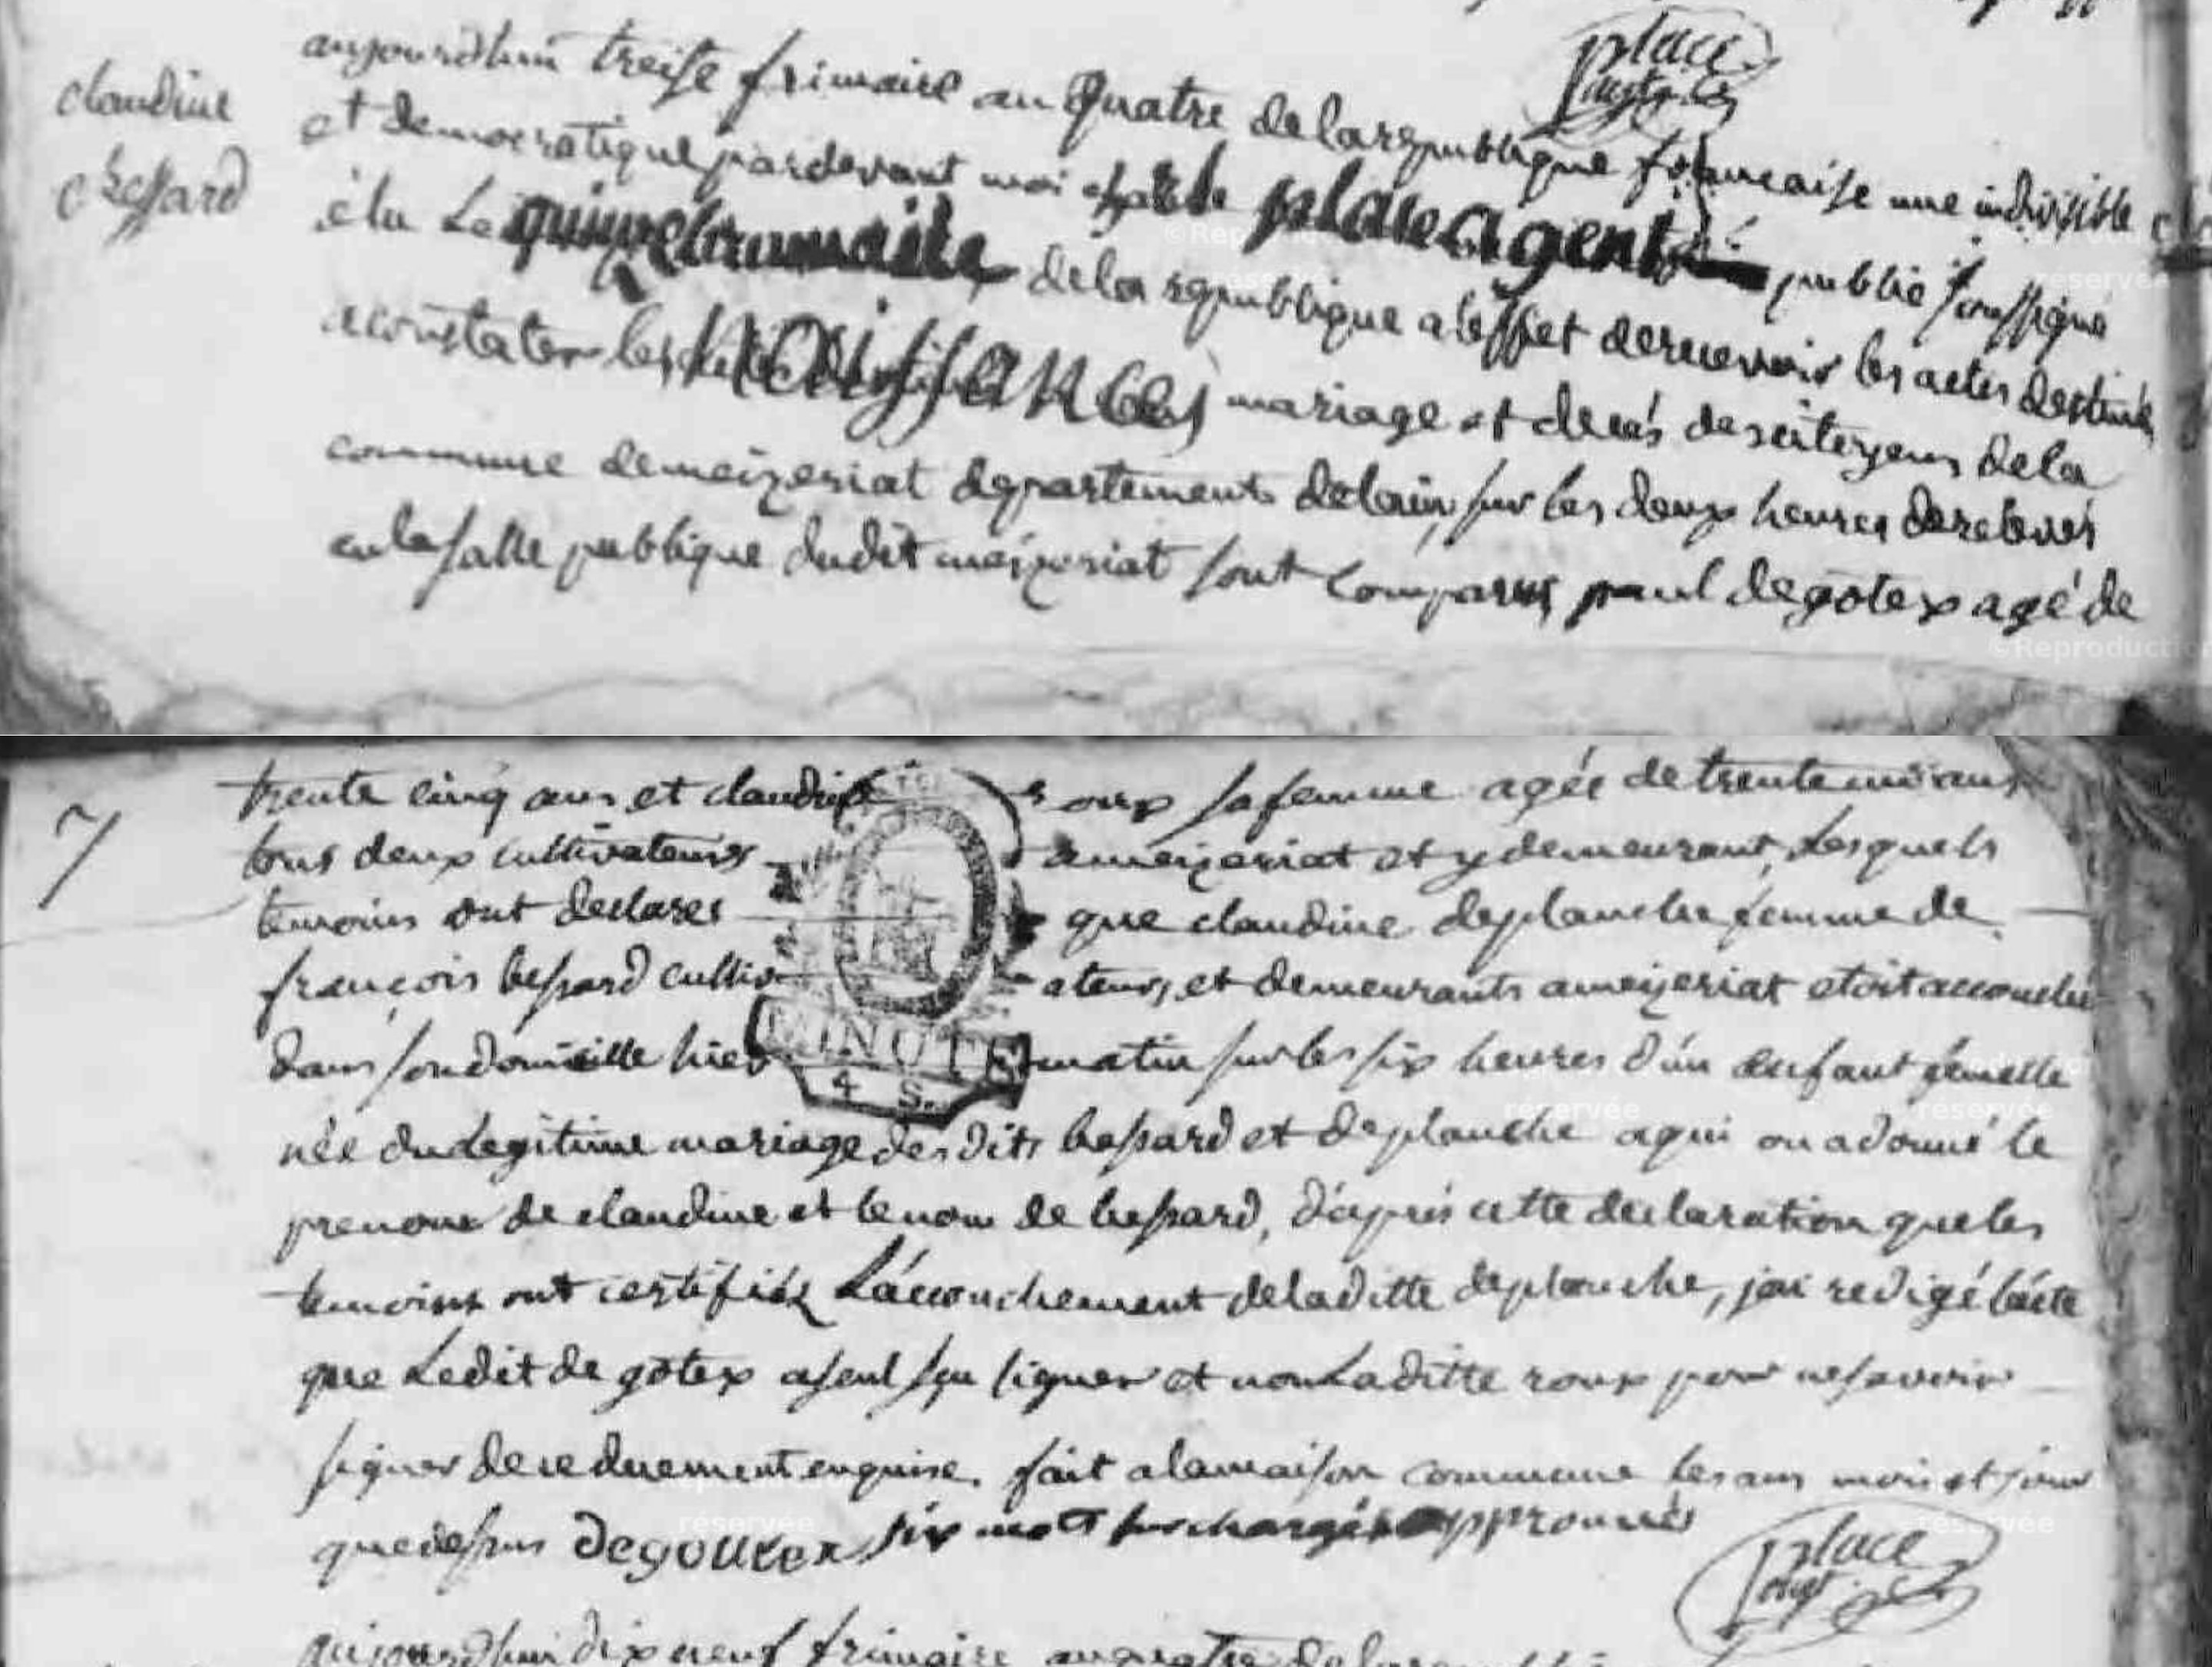 place
claudine
chessard
aujourdhui treise frimaire an quatre de la republique francaise une indivisible
et democratique pardevant moi place agent public soussigné
élu le quinze brumaire de la republique a leffet de recevoir les actes destinés
a constater les naissances mariage et decés des citoyens de la
commune demeizeriat departement de lain, sur les deux heures de relevés
en la salle publique dudit meizeriat sont comparus paul degotex agé de
7
trente cinq ans et claudine roux sa femme agée de trente ans
tous deux cultivateurs ameizeriat et y demeurant, Lesquels
temoins ont declarer que claudine deplanche femme de
françois bessard cultivateurs, et demeurants ameizeriat etoit accouchée
dans son domicille hier matin sur les six heures d'un enfant femelle
née du Legitime mariage des dits bessard et deplanche a qui on a donné le
prenom de claudine et le nom de bessard, d'apres cette declaration que les
temoins ont certifiés L'accouchement de laditte deplanche, jai redigé lacte
que Ledit de gotex a seul sçu signer et non Laditte roux pour ne savoir
signer de ce duement enquise. fait a la maison commune les ans mois et jour
que dessus degoutex six mots surchargés approuvés
place
MINUTE
4 S.
aujourdhui dix neuf frimaire an quatre de la